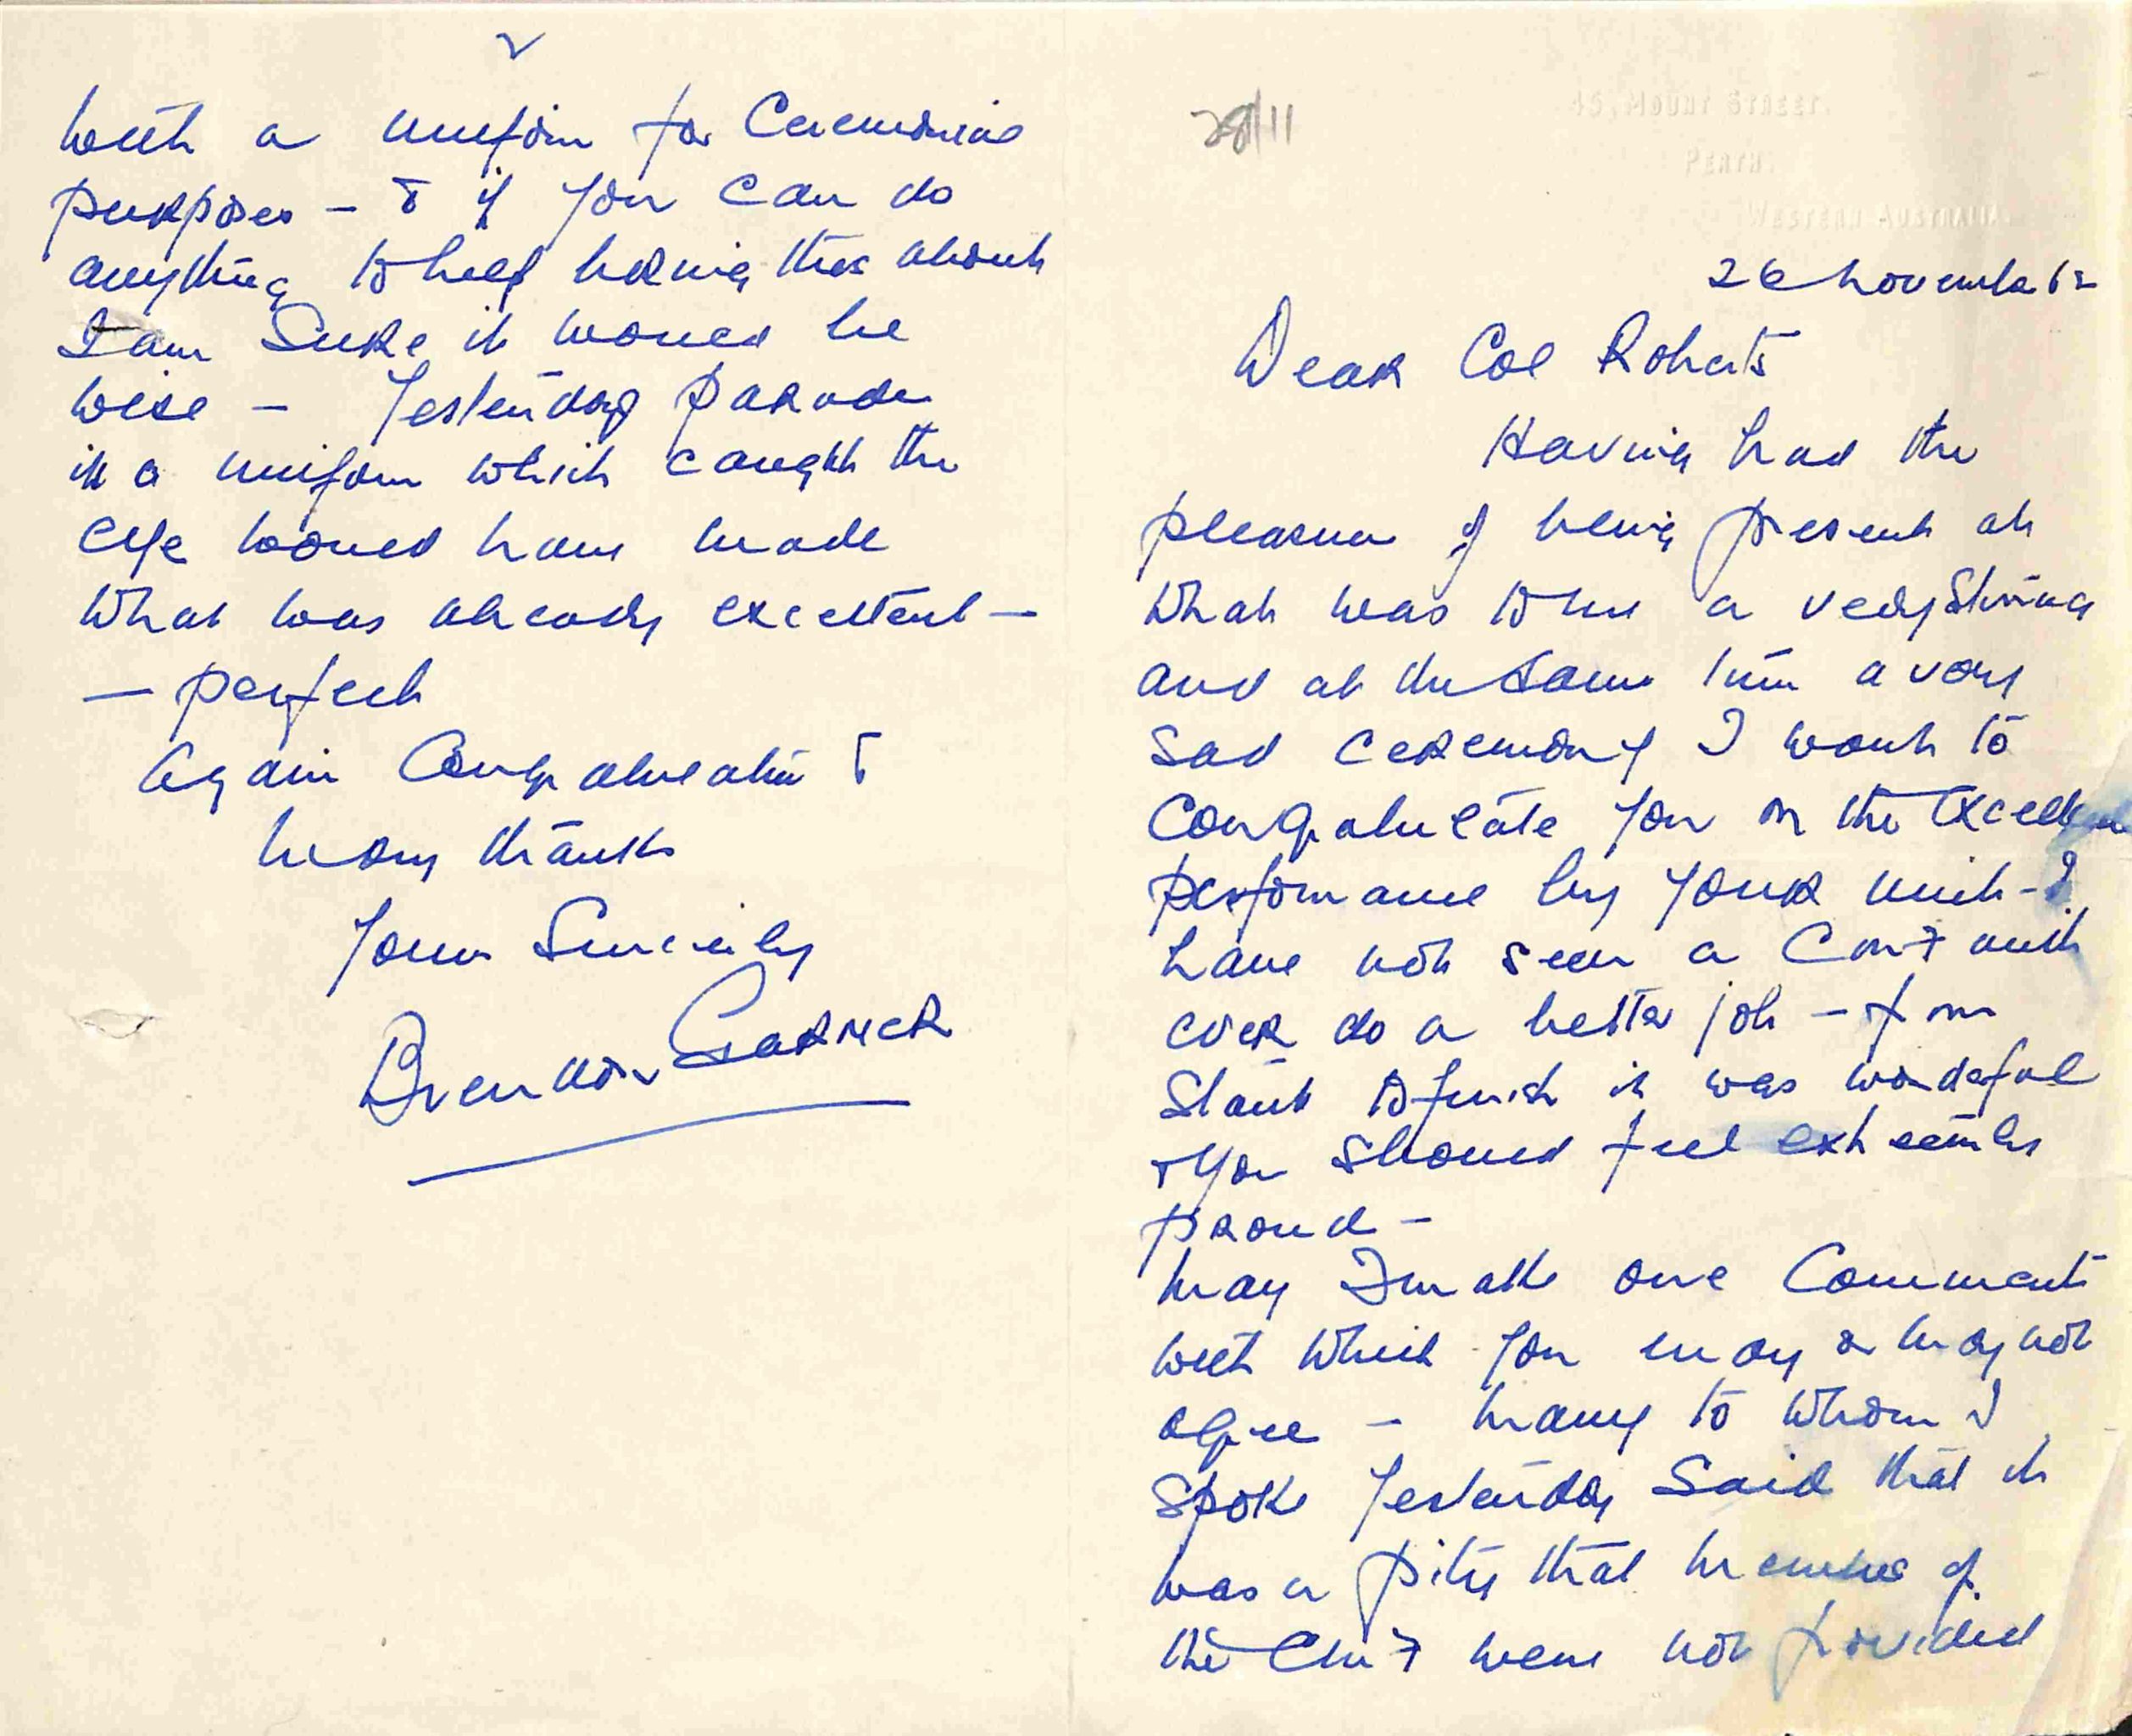 28/11
45, Mount Street.
Perth.
Western Australia.
26 November 62
Dear Col Roberts
Having had the
pleasure of being present at
what was to me a very stirring
and at the same time a very
sad ceremony I want to
congratulate you on the excellent
performance by your unit - I
have not seen a CMF unit
ever do a better job - from
start to finish it was wonderful
& you should feel extremely
proud -
May I make one comment
with which you may or may not
agree - Many to whom I
spoke yesterday said that it
was a pity that members of
the CMF were not provided
2
with a uniform for ceremonial
purposes - & if you can do
anything to help bring this about
I am sure it would be
wise - Yesterday parade
in a uniform which caught the
eye would have made
what was already excellent -
- perfect
Again congratulations &
many thanks
Yours Sincerely